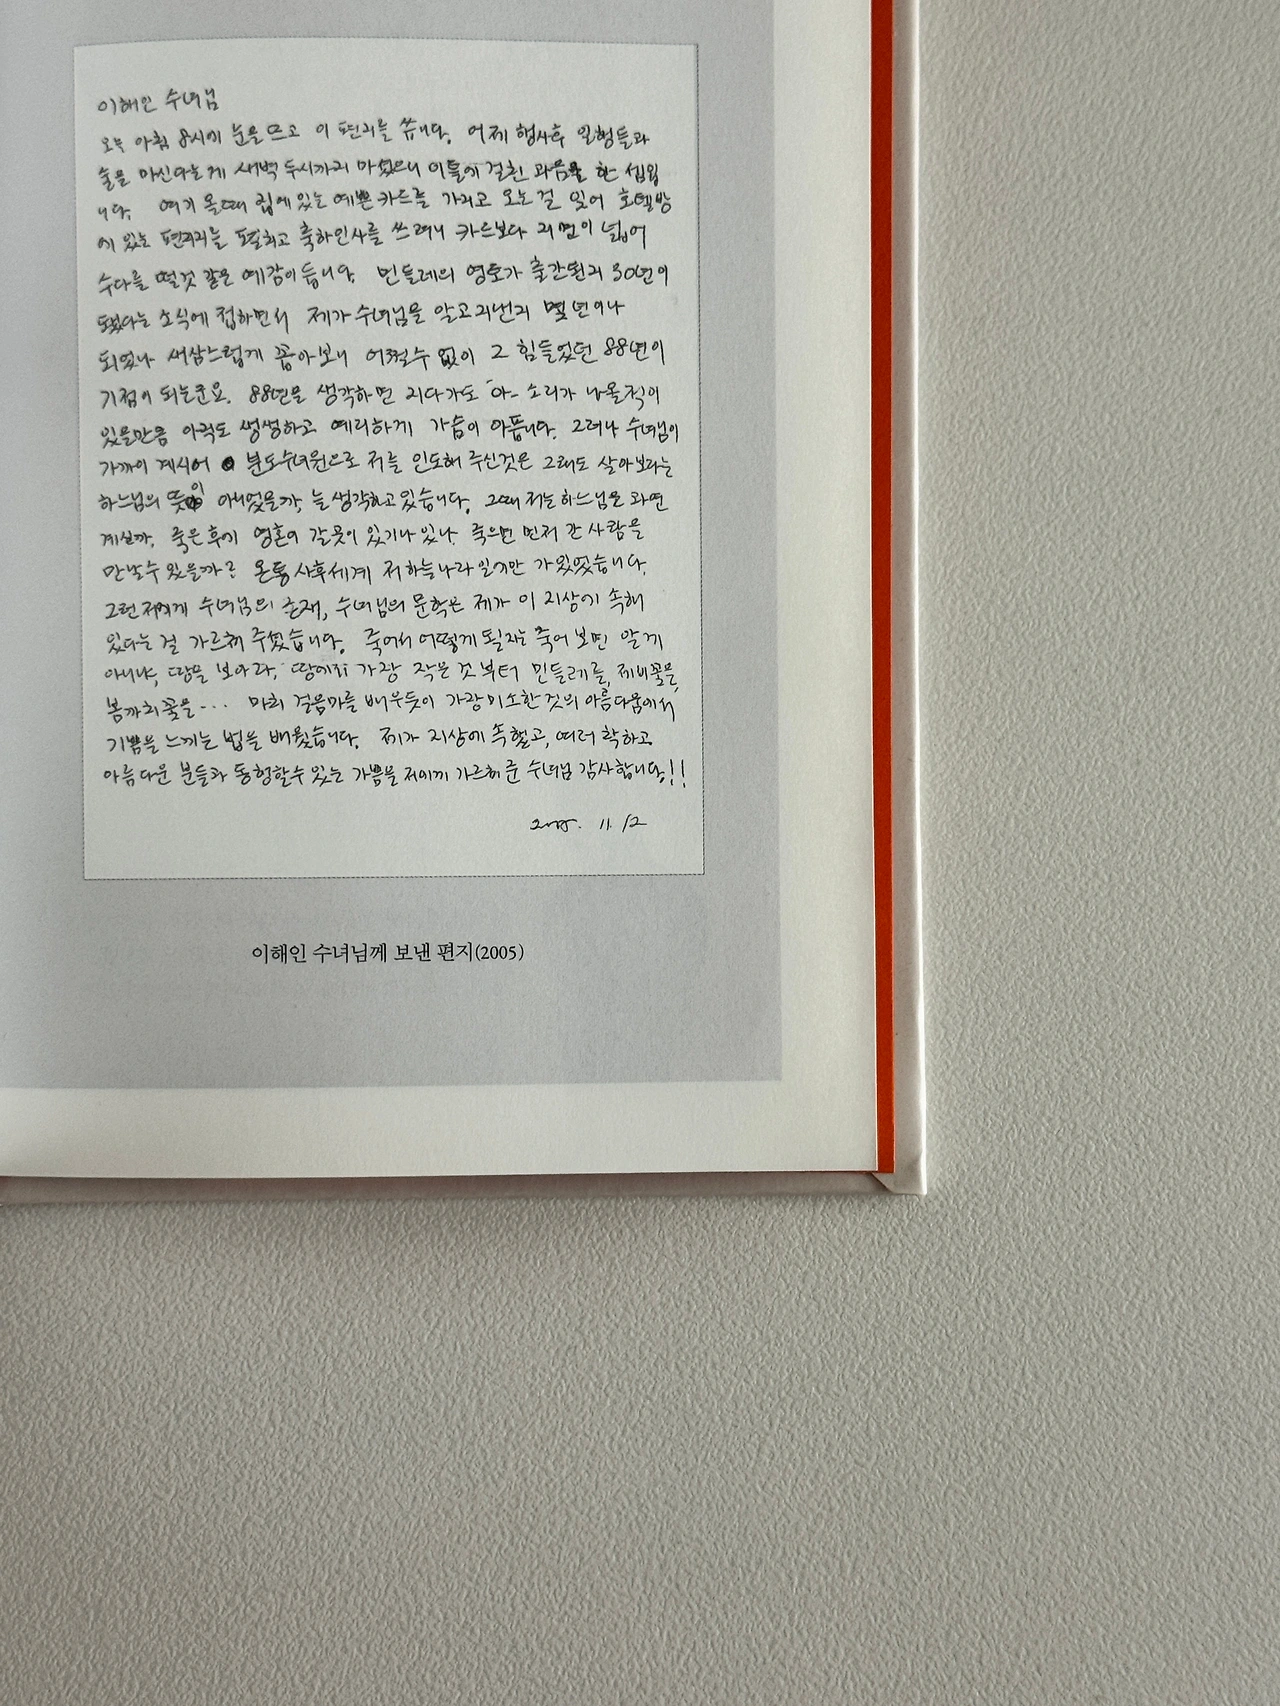 이해인 수녀님
오늘 아침 8시에 눈을 뜨고 이 편지를 씁니다. 어제 행사후 일행들과
술을 마신다는게 새벽 두시까지 마셨으니 이틀에 걸친 과음을 한 셈입
니다. 여기 올때 집에 있는 예쁜 카드를 가지고 오는 걸 잊어 호텔방
에 있는 편지지를 펼치고 축하인사를 쓰려니 카드보다 지면이 넓어
수다를 떨것 같은 예감이 듭니다. 민들레의 영토가 출간된지 30년이
됐다는 소식에 접하면서 제가 수녀님을 알고지낸지 몇 년이나
되었나 새삼스럽게 꼽아보니 어쩔수 없이 그 힘들었던 88년이
기점이 되는군요. 88년을 생각하면 지다가도 아- 소리가 나올적이
있을만큼 아직도 생생하고 예리하게 가슴이 아픕니다. 그러나 수녀님이
가까이 계시어 분도수녀원으로 저를 인도해 주신것은 그래도 살아보라는
하느님의 뜻이 아니었을까, 늘 생각하고 있습니다. 그때 저는 하느님은 과연
계실까. 죽은후에 영혼이 갈곳이 있기나 있나. 죽으면 먼저 간 사람을
만날수 있을까? 온통 사후세계 저 하늘나라 일에만 가있었습니다.
그런 저에게 수녀님의 존재, 수녀님의 문학은 제가 이 지상에 속해
있다는 걸 가르쳐 주셨습니다. 죽어서 어떻게 될지는 죽어 보면 알게
아니냐, 땅을 보아라, 땅에서 가장 작은 것 부터 민들레를, 제비꽃을,
봄까치꽃을... 마치 걸음마를 배우듯이 가장 미소한 것의 아름다움에서
기쁨을 느끼는 법을 배웠습니다. 제가 지상에 속했고, 여러 착하고
아름다운 분들과 동행할수 있는 기쁨을 저에게 가르쳐 준 수녀님 감사합니다!!
2005. 11. 12
이해인 수녀님께 보낸 편지(2005)